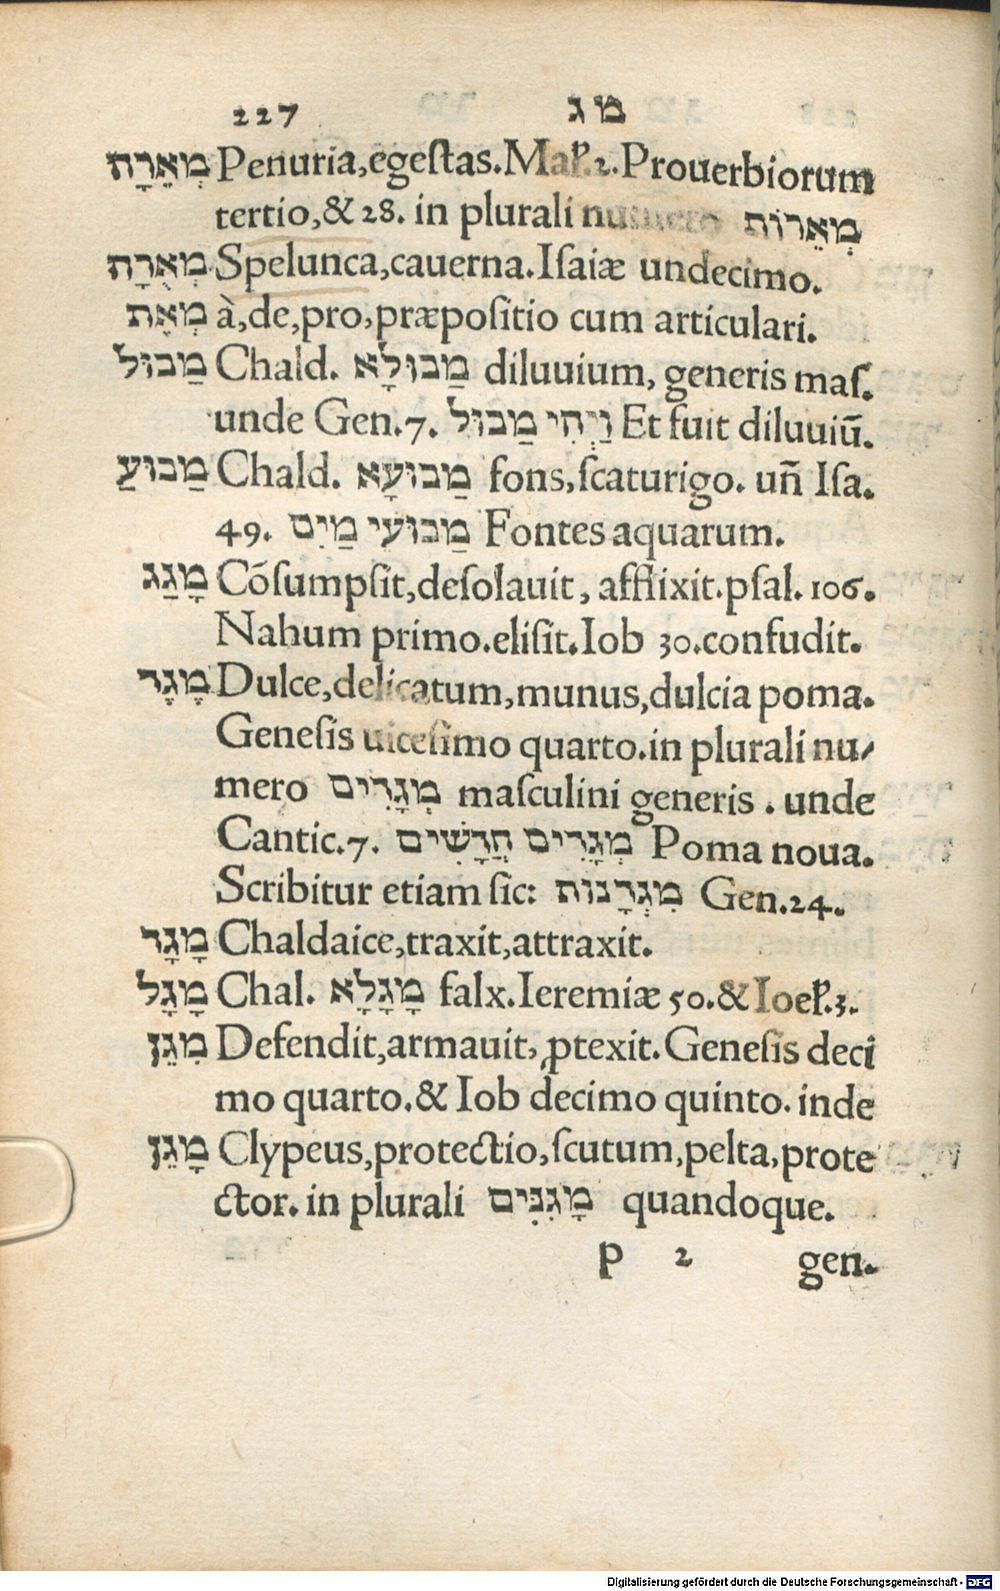 227 מג
מְאֵרָה Penuria,egeſtas.Mal̃.2.Prouerbiorum
tertio,&28. in plurali numero מְאֵרוֹת
מְאֻרָה Spelunca,cauerna.Iſaiæ undecimo.
מְאֵת à,de,pro,præpoſitio cum articulari.
מַבּוּל Chald. מַבוּלָא diluuium, generis maſ.
unde Gen.7. וַיְהִי מַבּוּל Et fuit diluuiũ.
מַבוּעַ Chald. מַבוּעָא fons,ſcaturigo. uñ Iſa.
49. מַבוּעי מַיִם Fontes aquarum.
מָגַג Cõſumpſit,deſolauit, afflixit.pſal. 106.
Nahum primo.eliſit.Iob 30.confudit.
מָגָר Dulce,delicatum,munus,dulcia poma.
Geneſis uiceſimo quarto.in plurali nu/
mero מְגָרִים maſculini generis . unde
Cantic.7. מְגָרִים חֲדָשִׁים Poma noua.
Scribitur etiam ſic: מִגְרָנוֹת Gen.24.
מָגָר Chaldaice,traxit,attraxit.
מָגָל Chal. מָגָלָא falx.Ieremiæ 50.&Ioel̃.3.
מִגֵן Defendit,armauit, ꝓtexit.Geneſis deci
mo quarto.& Iob decimo quinto. inde
מָגֵן Clypeus,protectio,ſcutum,pelta,prote
ctor. in plurali מָגִנִּים quandoque.
p 2 gen.
Digitalisierung gefördert durch die Deutsche Forschungsgemeinschaft - DFG